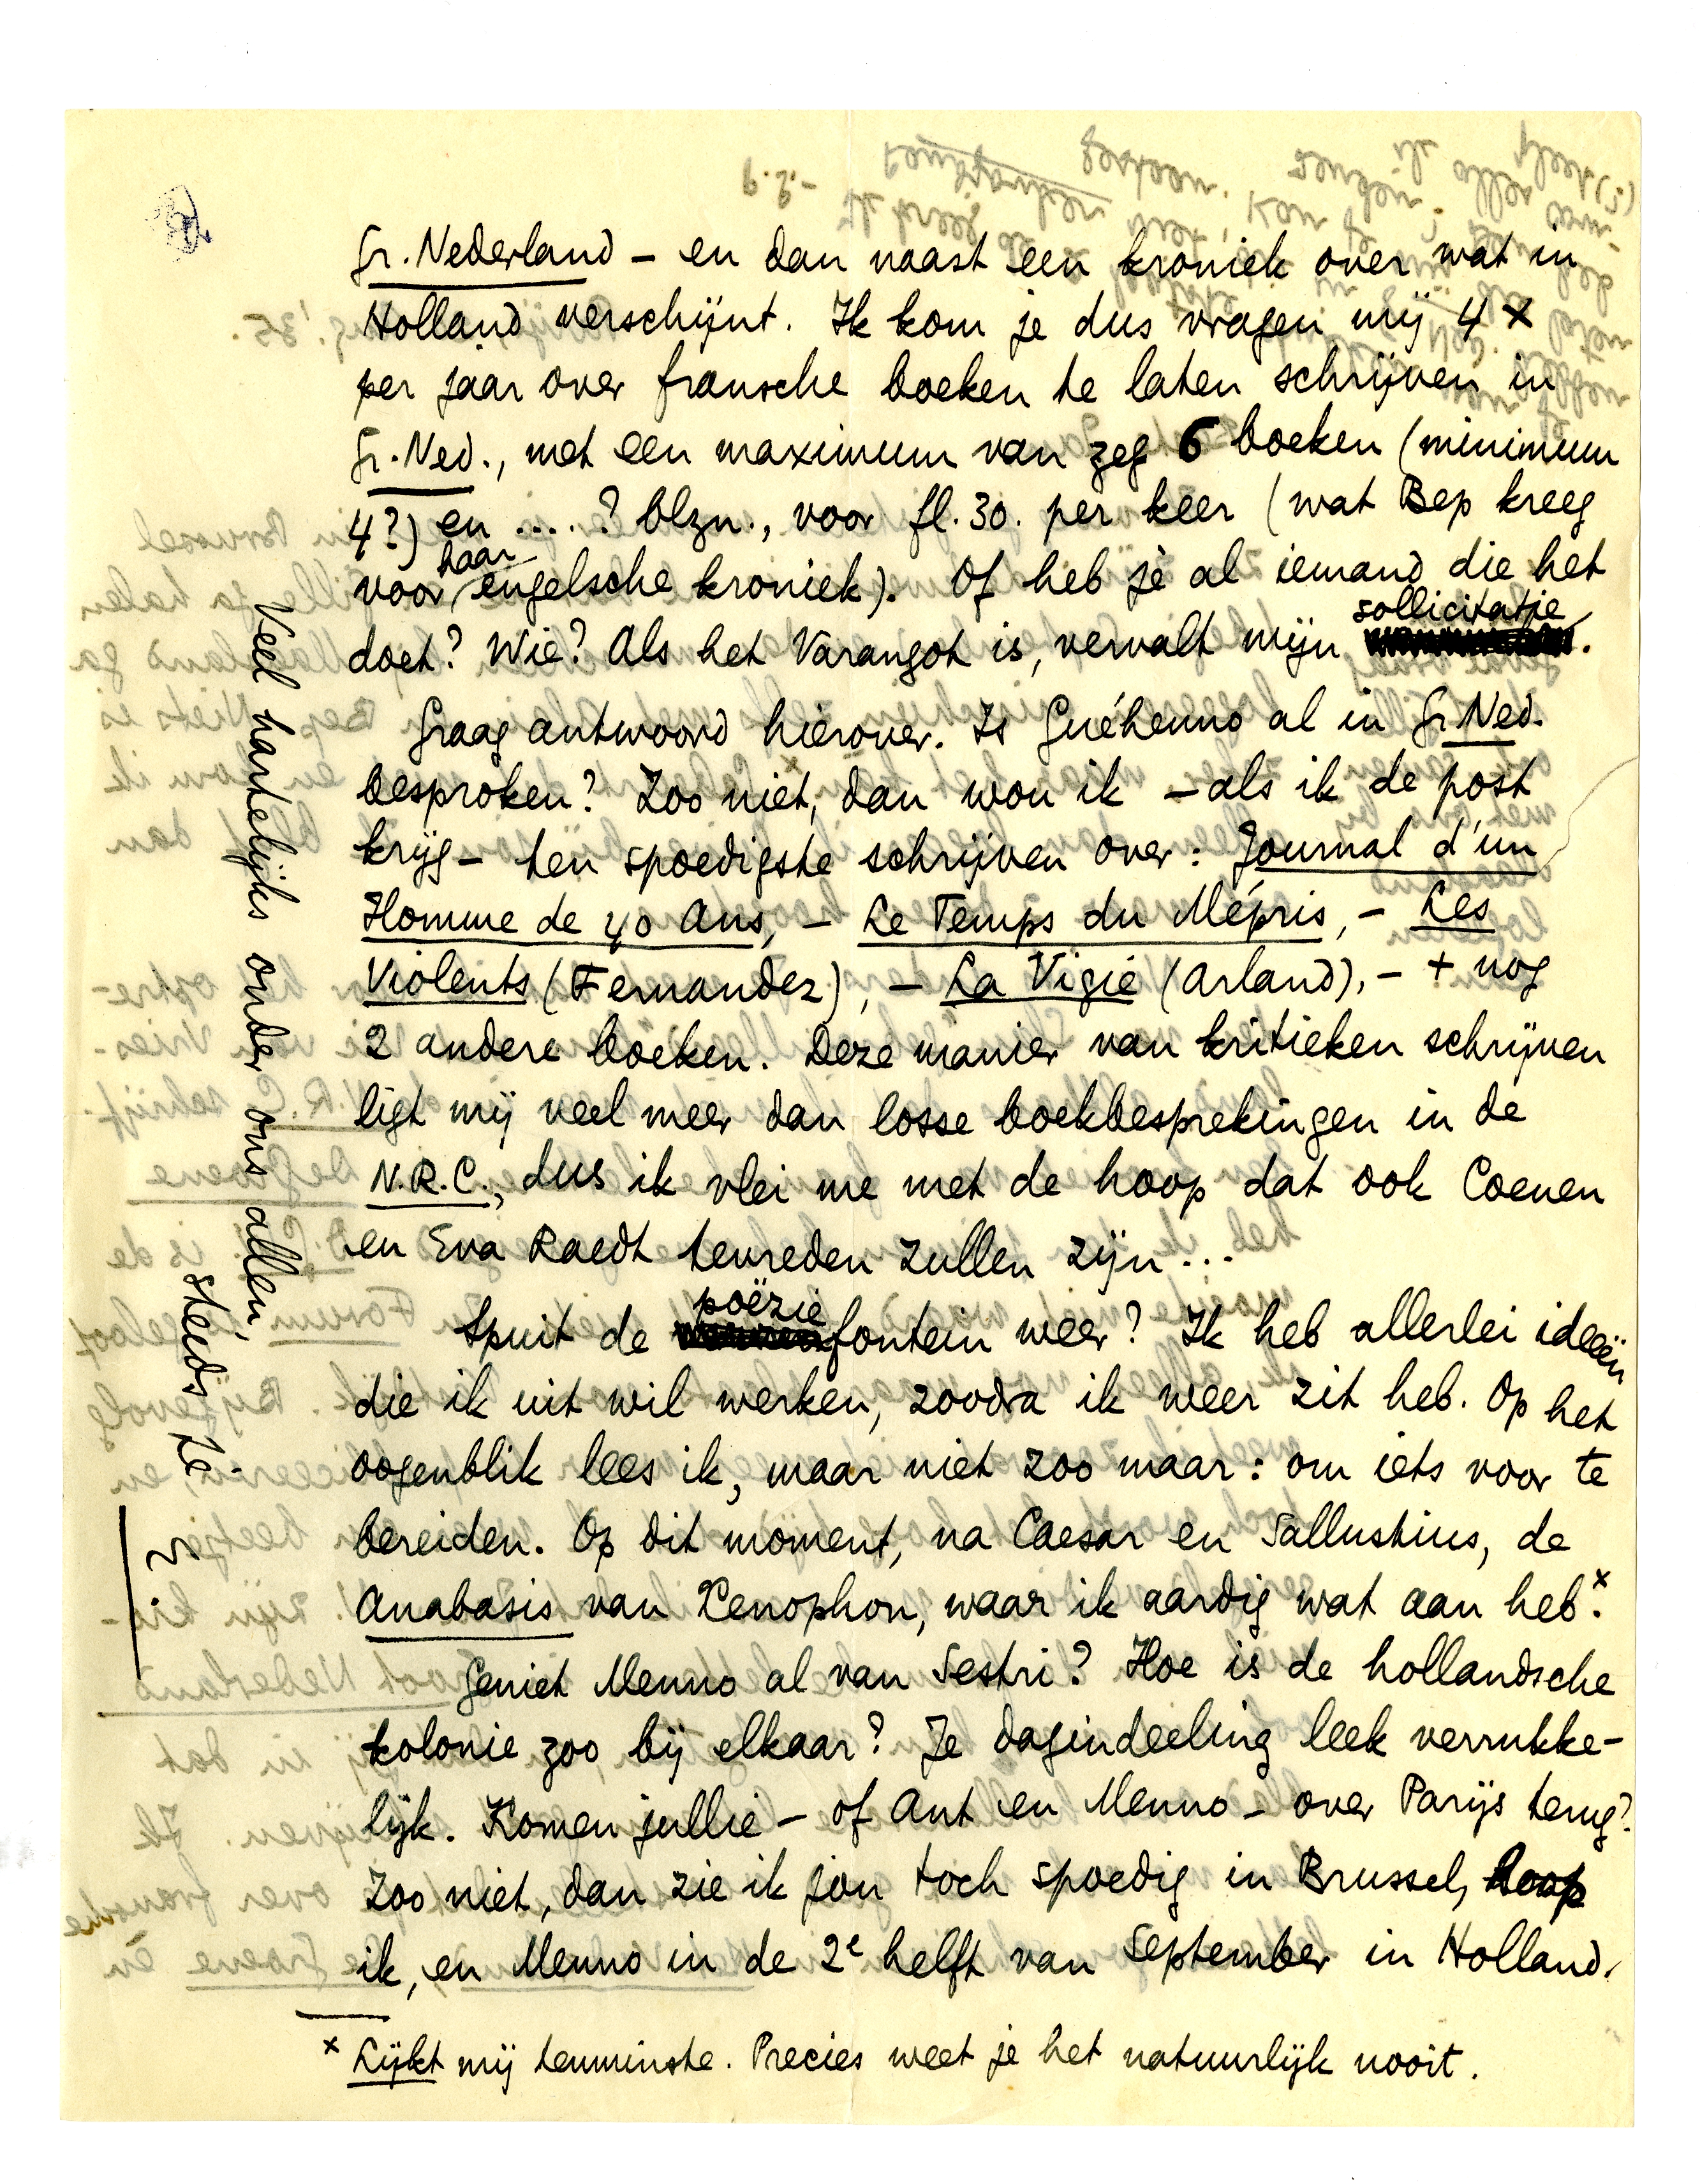 Gr. Nederland – en dan naast een kroniek over wat in
Holland verschijnt. Ik kom je dus vragen mij 4 x
per jaar over fransche boeken te laten schrijven in
Gr. Ned., met een maximum van zeg 6 boeken (minimum
4?) en ....? blzn., voor fl. 30. per keer (wat Bep kreeg
voor haar engelsche kroniek). Of heb je al iemand die het
doet? Wie? Als het Varangot is, vervalt mijn sollicitatie.
Graag antwoord hierover. Is Guéhenno al in Gr. Ned.
besproken? Zoo niet, dan wou ik – als ik de post
krijg – ten spoedigste schrijven over: Journal d'un
Homme de 40 Ans, – Le Temps du Mépris, – Les
Violents (Fernandez), – La Vigie (Arland), – + nog
2 andere boeken. Deze manier van kritieken schrijven
ligt mij veel meer dan losse boekbesprekingen in de
N.R.C., dus ik vlei me met de hoop dat ook Coenen
en Eva Raedt tevreden zullen zijn...
Spuit de poëziefontein weer? Ik heb allerlei ideeën
die ik uit wil werken, zoodra ik weer zit heb. Op het
oogenblik lees ik, maar niet zoo maar: om iets voor te
bereiden. Op dit moment, na Caesar en Sallustius, de
Anabasis van Xenophon, waar ik aardig wat aan heb.x
Geniet Menno al van Sestri? Hoe is de hollandsche
kolonie zoo bij elkaar? Je dagindeeling leek verrukke-
lijk. Komen jullie – of Ant en Menno – over Parijs terug?
Zoo niet, dan zie ik jou toch spoedig in Brussel, hoop
ik, en Menno in de 2e helft van September in Holland.
x Lijkt mij tenminste. Precies weet je het natuurlijk nooit.
Veel hartelijks onder ons allen,
steeds je
E.